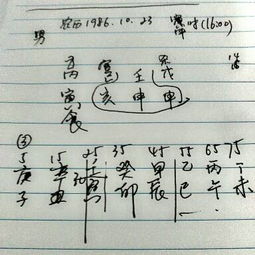 农历1986.10.23 申时(16:00)
男
丙 己 壬 戊
寅 亥 申 申
食
③
5 15 25 35 45 55 65 75
庚 辛 壬 癸 甲 乙 丙 丁
子 丑 寅 卯 辰 巳 午 未